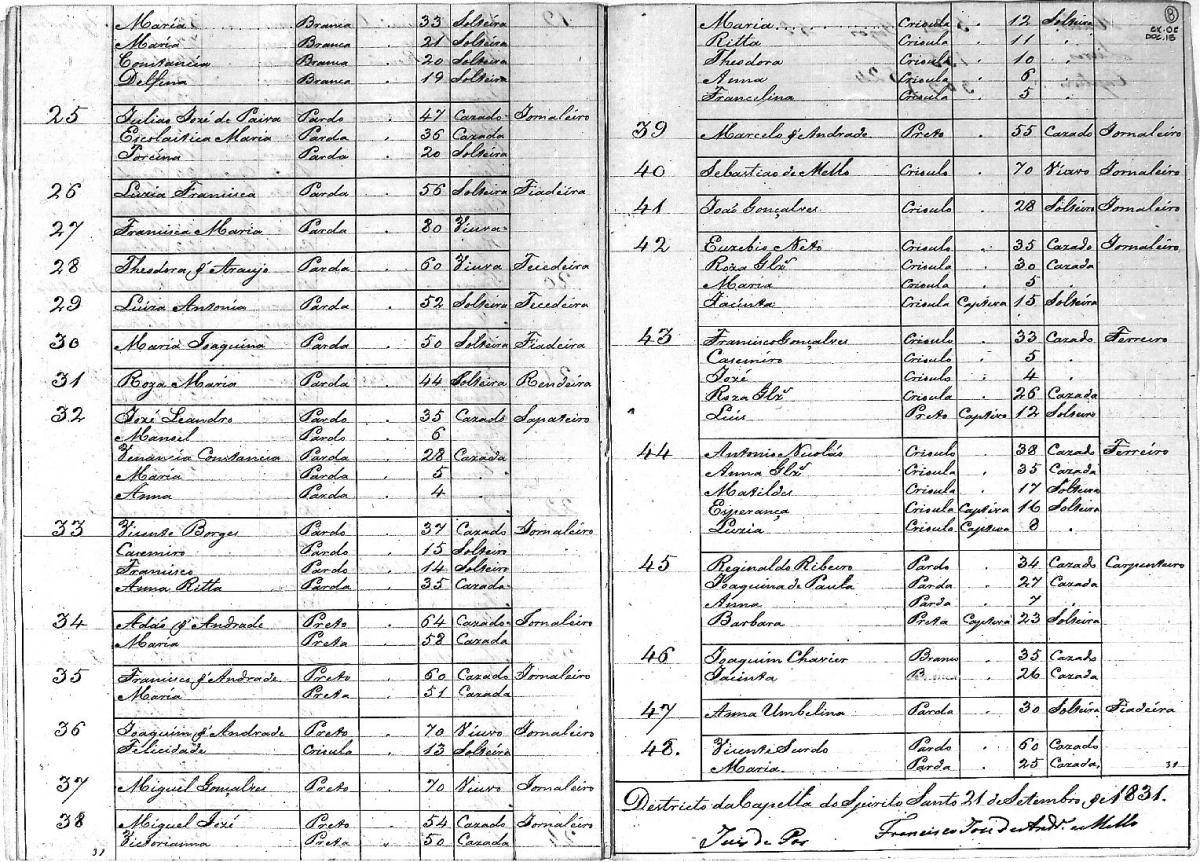 Maria Branca 33 Solteira
Maria Branca 21 Solteira
Constancia Branca 20 Solteira
Delfina Branca 19 Solteira
25 Julião José de Paiva Pardo 47 Cazado Jornaleiro
Escolastica Maria Parda 36 Cazada
Parda 20 Solteira
26 Luzia Francisca Parda 56 Solteira Fiadeira
27 Francisca Maria Parda 80 Viuva
28 Theodora d'Araujo Parda 60 Viuva Tecedeira
29 Luiza Antonia Parda 52 Solteira Tecedeira
30 Maria Joaquina Parda 50 Solteira Fiadeira
31 Roza Maria Parda 44 Solteira Rendeira
32 José Leandro Pardo 35 Cazado Sapateiro
Manoel Pardo 6
Venancia Constancia Parda 28 Cazada
Maria Parda 5
Anna Parda 4
33 Vicente Borges Pardo 37 Cazado Jornaleiro
Casemiro Pardo 15 Solteiro
Francisco Pardo 14 Solteiro
Anna Ritta Parda 35 Cazada
34 Adão d'Andrade Preto 64 Cazado Jornaleiro
Maria Preta 58 Cazada
35 Francisco d'Andrade Preto 60 Cazado Jornaleiro
Maria Preta 51 Cazada
36 Joaquim d'Andrade Preto 70 Viuvo Jornaleiro
Felicidade Crioula 13 Solteira
37 Miguel Gonçalves Preto 70 Viuvo Jornaleiro
38 Miguel José Preto 54 Cazado Jornaleiro
Victorianna Preta 50 Cazada
8
CX-05
DOC.15
Maria Crioula 12 Solteira
Ritta Crioula 11
Theodora Crioula 10
Anna Crioula 6
Francelina Crioula 5
39 Marcelo d'Andrade Preto 55 Cazado Jornaleiro
40 Sebastião de Mello Crioulo 70 Viuvo Jornaleiro
41 João Gonçalves Crioulo 28 Solteiro Jornaleiro
42 Euzebio Neto Crioulo 35 Cazado Jornaleiro
Roza Glz Crioula 30 Cazada
Maria Crioula 5
Jacinta Crioula Captiva 15 Solteira
43 Francisco Gonçalves Crioulo 33 Cazado Ferreiro
Casemiro Crioulo 5
José Crioulo 4
Roza Glz Crioula 26 Cazada
Luis Preto Captivo 12 Solteiro
44 Antonio Nicolás Crioulo 38 Cazado Ferreiro
Anna Glz Crioula 35 Cazada
Matildes Crioula 17 Solteira
Esperança Crioula Captiva 16 Solteira
Luzia Crioula Captiva 8
45 Reginaldo Ribeiro Pardo 34 Cazado Carpenteiro
Joaquina de Paula Parda 27 Cazada
Anna Parda 7
Barbara Preta Captiva 23 Solteira
46 Joaquim Chavier Branco 35 Cazado
Jacinta 26 Cazada
47 Anna Umbelina Parda 30 Solteira Fiadeira
48. Vicente Surdo Pardo 60 Cazado
Maria Parda 25 Cazada
Destricto da Capella do Spirito Santo 21 de Setembro de 1831.
Juis de Pas Francisco José de And.e e Mello